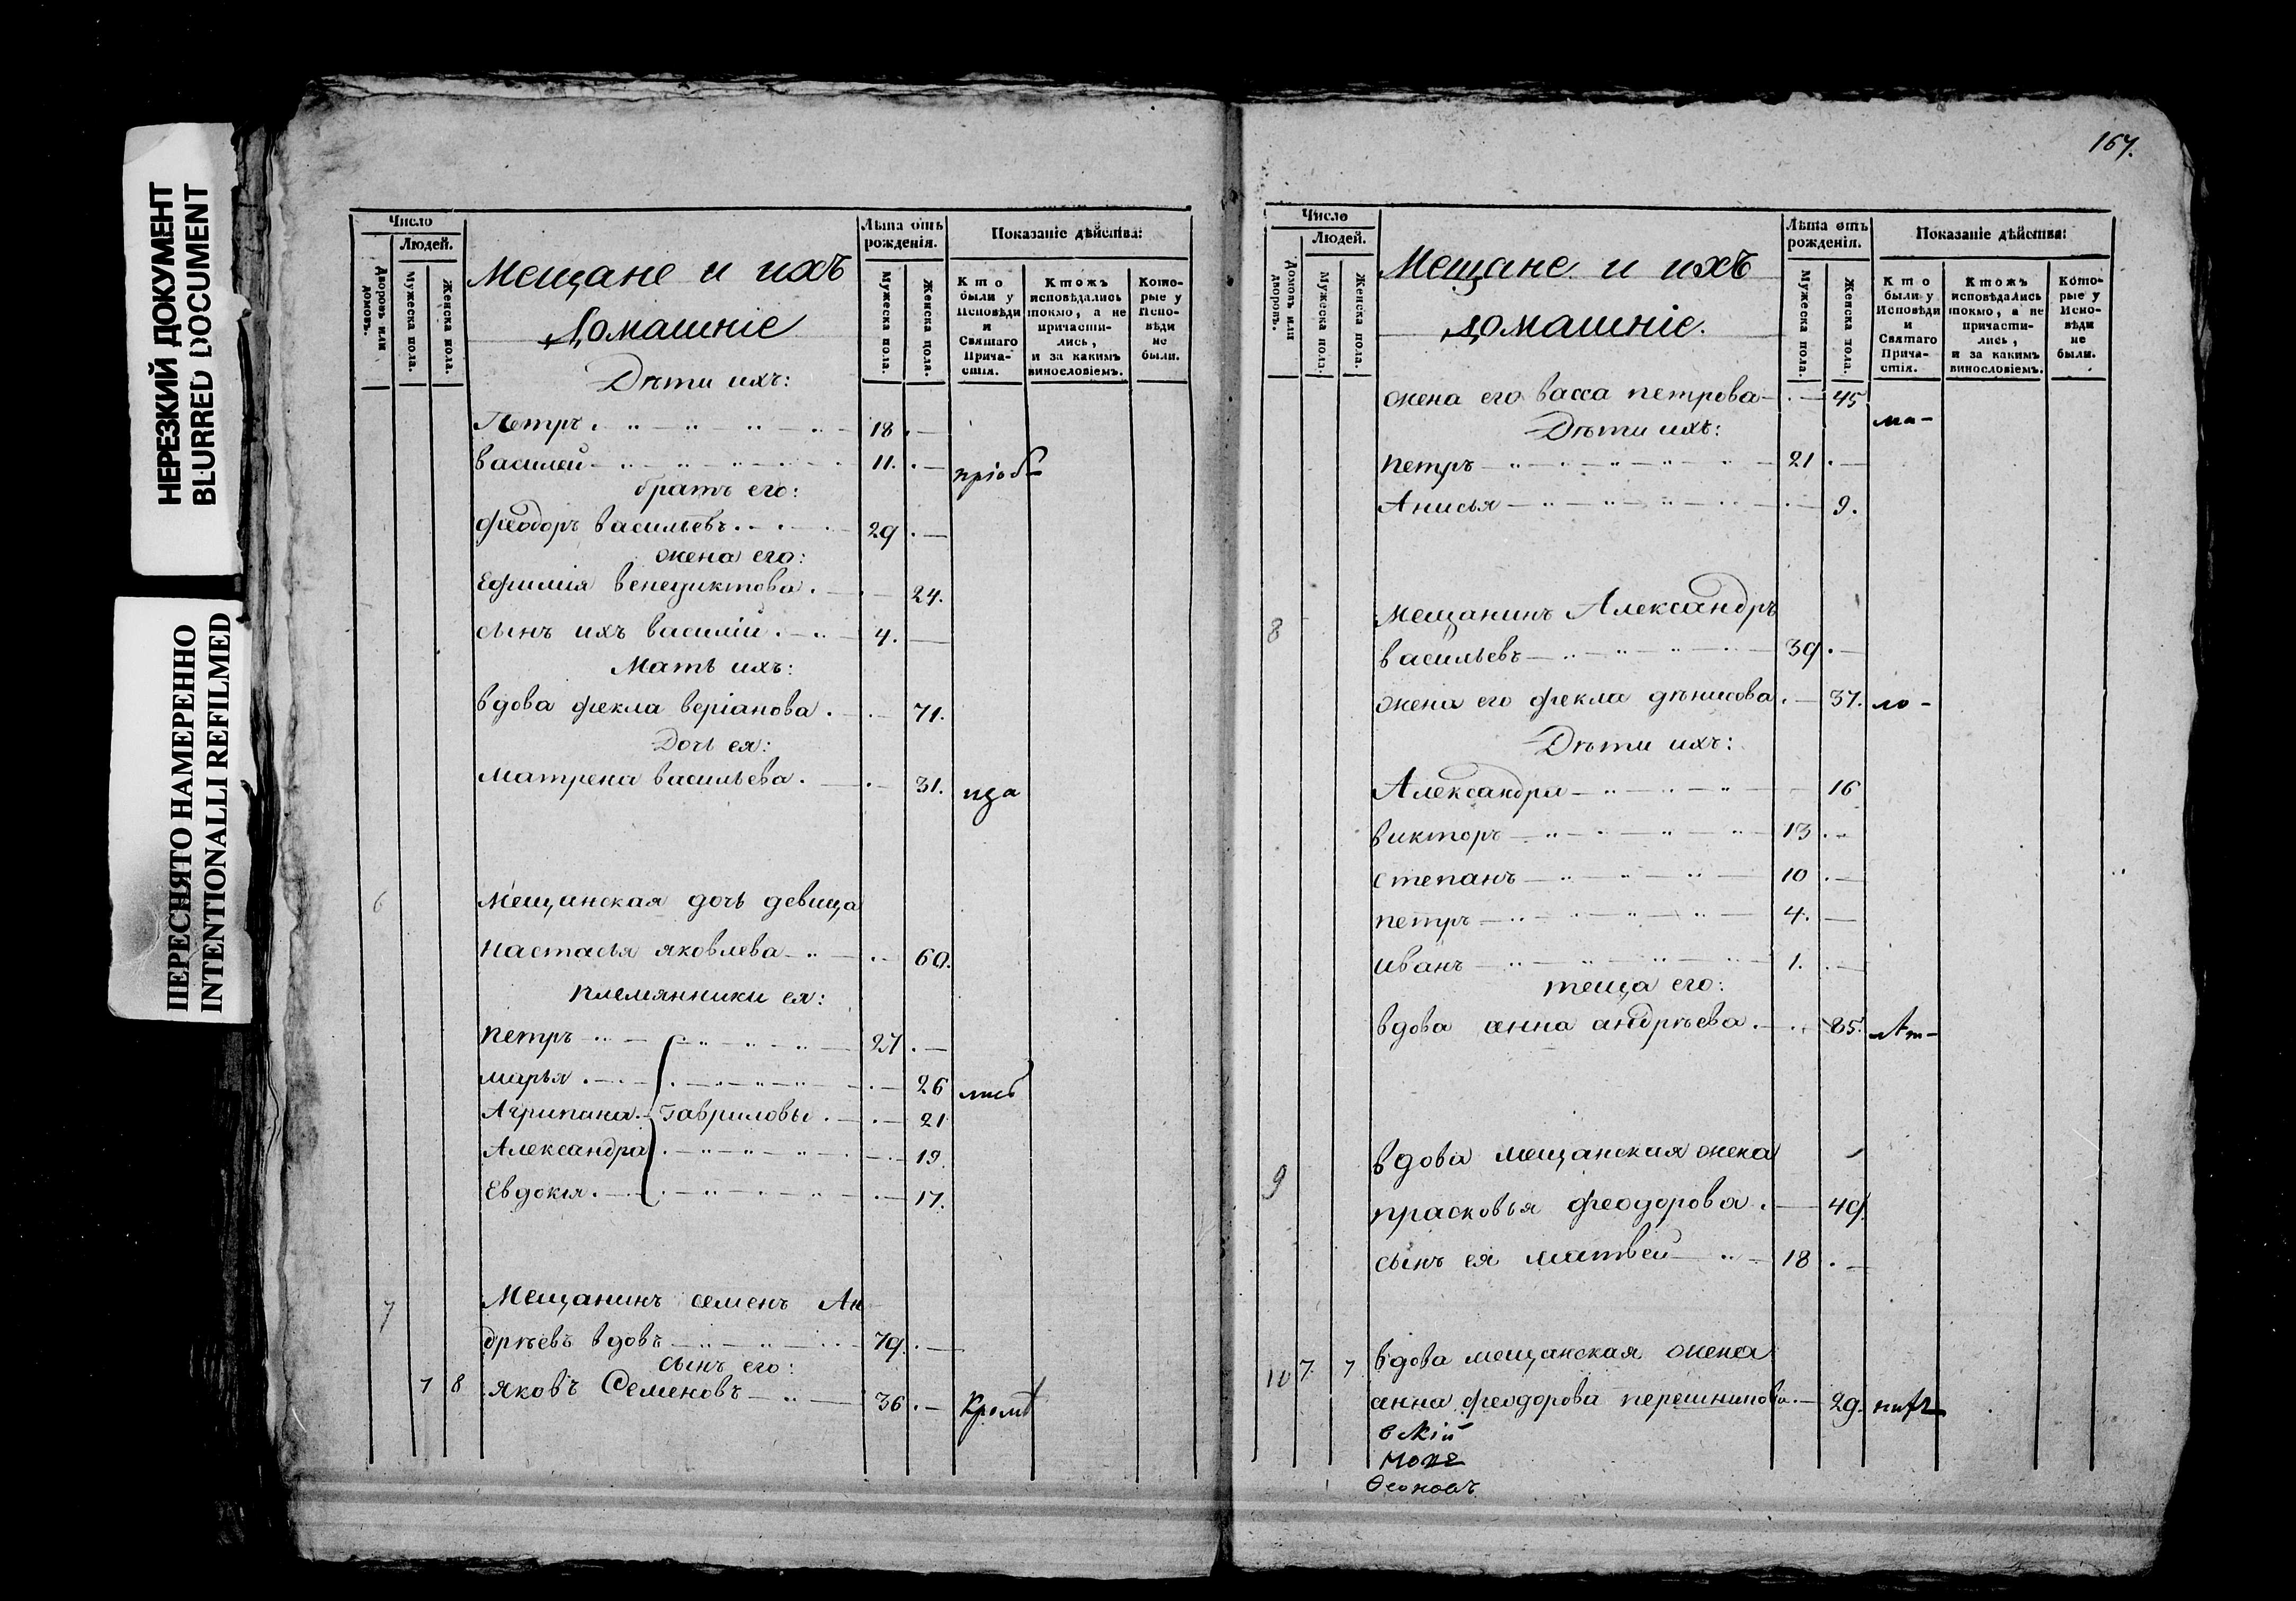 НЕРЕЗКИЙ ДОКУМЕНТ
BLURRED DOCUMENT
ПЕРЕСНЯТО НАМЕРЕННО
INTENTIONALLI REFILMED
Число
Людей.
Дворовъ или домовъ.
Мужеска пола.
Женска пола.
Мещане и ихъ
Домашніе
Лѣта отъ рожденія.
Мужеска пола.
Женска пола.
Показаніе дѣйства:
Кто были у Исповѣди и Святаго Прича-стія.
Ктожъ исповѣдались токмо, а не причасти-лись, и за какимъ винословіемъ.
Кото-рые у Испо-вѣди не были.
Дѣти ихъ:
Петръ 18
Василей 11. пріоб
братъ его:
Феодоръ Васильевъ 29
жена его:
Ефимия Венедиктова 24.
сынъ ихъ Василій 4.
Мать ихъ:
вдова Фекла Веріанова 71.
Дочь ея:
Матрена Васильева 31. ща
6 Мещанская дочь девица
Настасья Яковлева 60.
племянники ея:
Петръ 27
Марья 26 лись
Агрипана Гавриловы 21
Александра 19.
Евдокия 17.
7 Мещанинъ Семенъ Ан
дрѣевъ вдовъ 79.
сынъ его:
7 8 Яковъ Семеновъ 36 Кромѣ
167.
Число
Людей.
Домовъ или дворовъ.
Мужеска пола.
Женска пола.
Мещане и ихъ
домашніе.
Лѣта отъ рожденія.
Мужеска пола.
Женска пола.
Показаніе дѣйства:
Кто были у Исповѣди и Святаго Прича-стія.
Ктожъ исповѣдались токмо, а не причасти-лись, и за какимъ винословіемъ.
Кото-рые у Испо-вѣди не были.
жена его Васса Петрова 45 ма-
Дѣти ихъ:
Петръ 21
Анисья 9.
8 Мещанинъ Александръ
Васильевъ 39
жена его Фекла Дѣнисова 37. ло-
Дѣти ихъ:
Александра 16
Викторъ 13
Степанъ 10
Петръ 4.
Иванъ 1.
теща его:
вдова Анна Андрѣева 85. лѣт-
9 вдова мещанская жена
Прасковья Феодорова 49.
сынъ ея Матвей 18
10 7 7 вдова мещанская жена
Анна Феодорова 29.